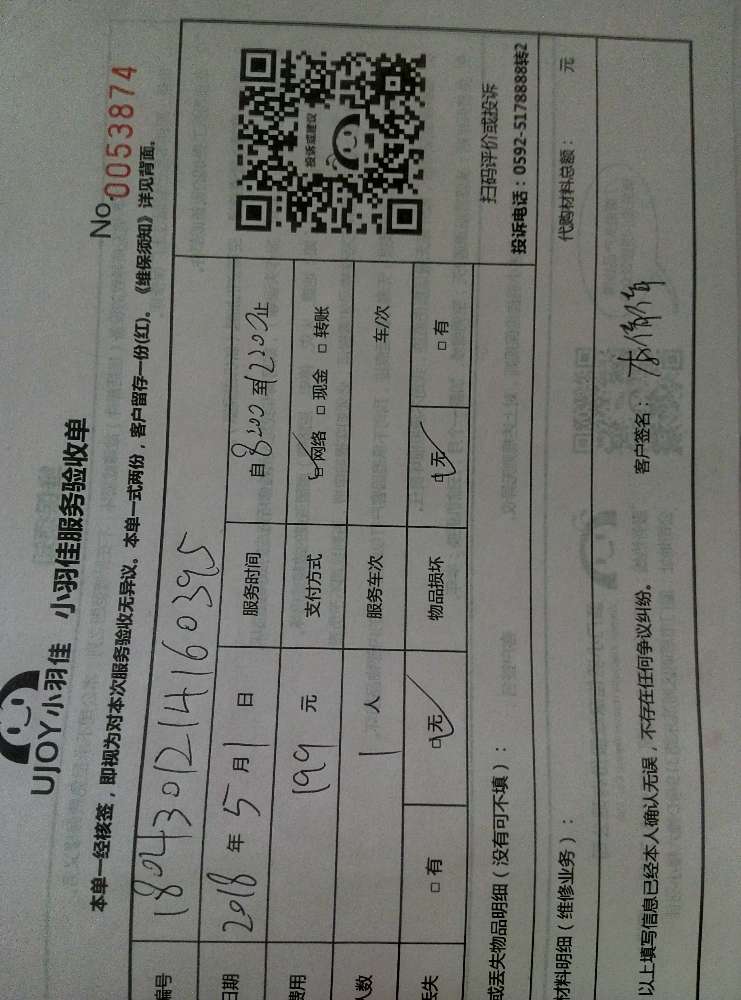 UJOY小羽佳 小羽佳服务验收单
No.0053874
本单一经核签，即视为对本次服务验收无异议。本单一式两份，客户留存一份(红)。《维保须知》详见背面。
编号 1804301214160395
日期 2018 年 5 月 1 日 服务时间 自 8:00 至 12:00 止
费用 199 元 支付方式 网络 现金 转账
人数 1 人 服务车次 车/次
丢失 有 无 物品损坏 无 有
投诉或建议
扫码评价或投诉
投诉电话：0592-5178888转2
或丢失物品明细（没有可不填）：
材料明细（维修业务）： 代购材料总额： 元
以上填写信息已经本人确认无误，不存在任何争议纠纷。 客户签名：